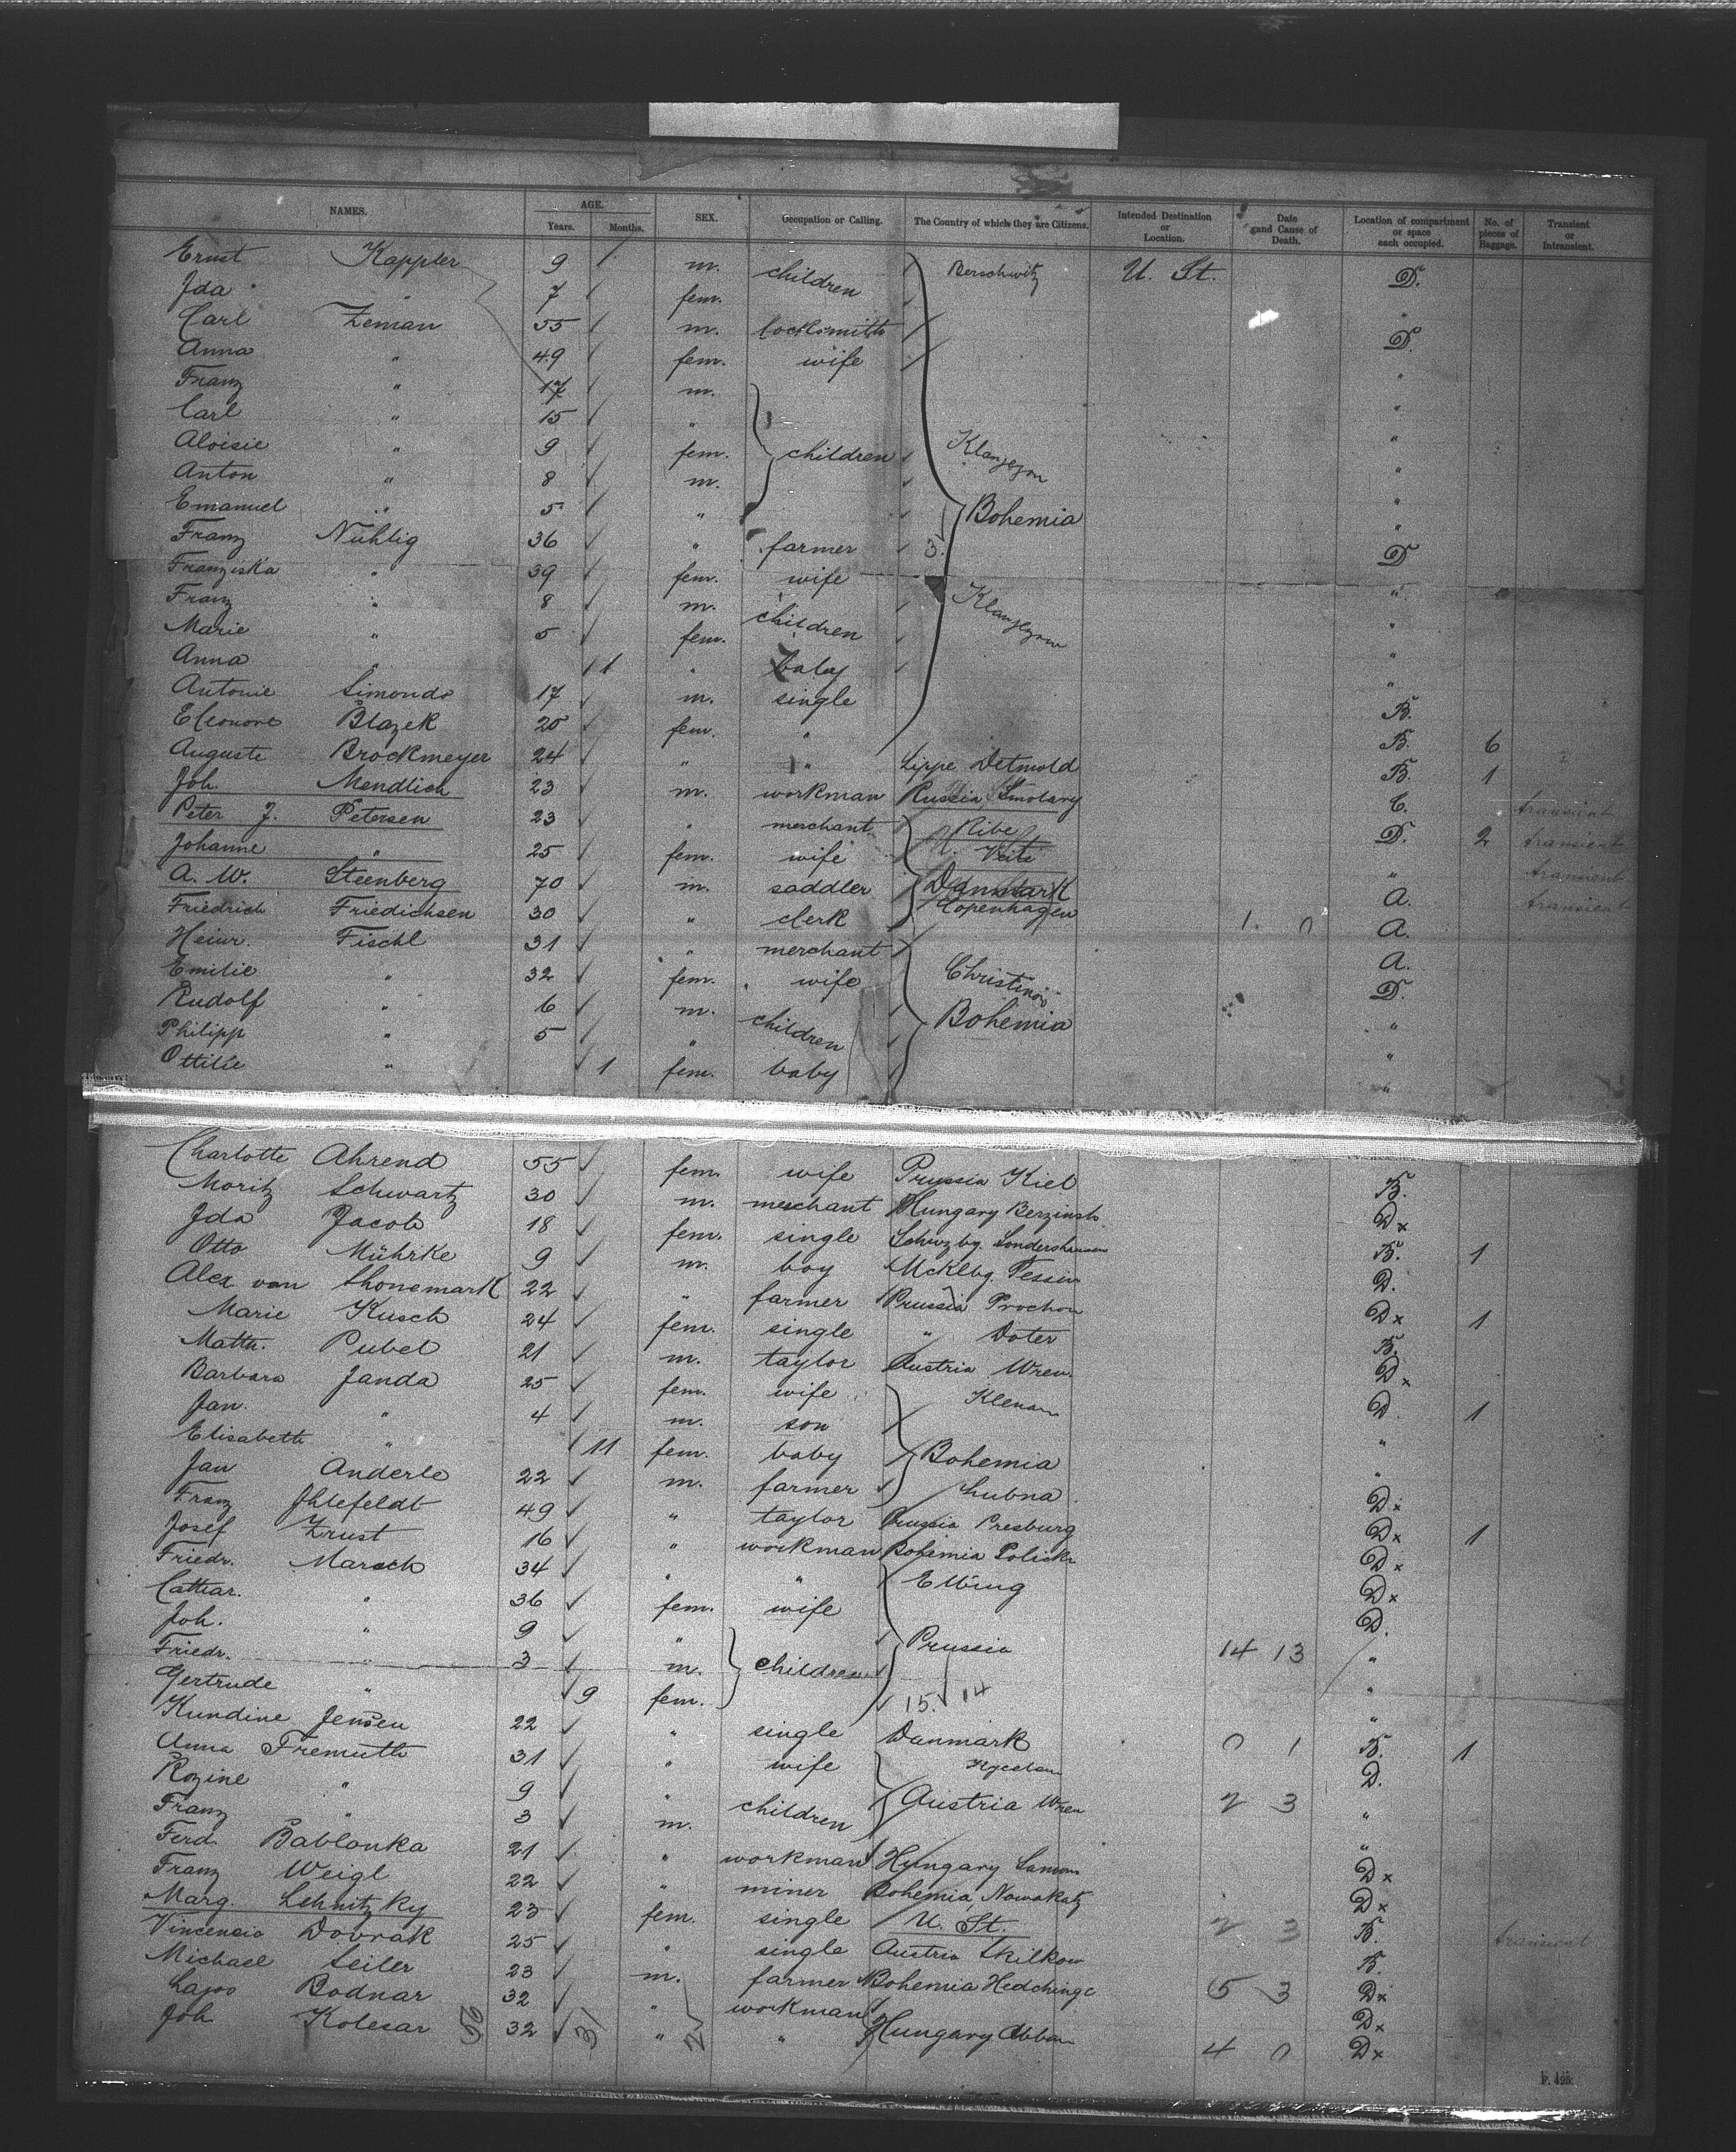 NAMES. AGE. SEX. Occupation or Calling. The Country of which they are Citizens. Intended Destination or Location. Date and Cause of Death. Location of compartment or space each occupied. No. of pieces of Baggage. Transient or Intransient.
Years. Months.
Ernst Kappler 9 m. children Berschwitz U. St. D.
Ida " 7 fem. "
Carl Zeman 55 m. locksmith D.
Anna " 49 fem. wife "
Franz " 17 m. "
Carl " 15 " "
Aloisie " 9 fem. children "
Anton " 8 m. "
Emanuel " 5 " Bohemia "
Franz Nühlig 36 " farmer 3. D
Franziska " 39 fem. wife "
Franz " 8 m. children "
Marie " 5 fem. "
Anna " 1 " baby "
Antonie Simonds 17 m. single B.
Eleonore Blazek 20 fem. " B. 6
Auguste Brockmeyer 24 " " Lippe Detmold B. 1
Joh. Mendlich 23 m. workman Russia Smolary C. transient
Peter J. Petersen 23 " merchant Ribe D. 2 transient
Johanne " 25 fem. wife Veile " transient
A. W. Steenberg 70 m. saddler Danmark A. transient
Friedrich Friedichsen 30 " clerk Copenhagen 1. 0 A.
Heinr. Fischl 31 " merchant A.
Emilie " 32 fem. wife D.
Rudolf " 6 m. children Bohemia "
Philipp " 5 " "
Ottilie " 1 fem. baby "
Charlotte Ahrend 55 fem. wife Prussia Kiel B.
Moritz Schwartz 30 m. merchant Hungary D x
Ida Jacob 18 fem. single Schwzbg. Sondershausen B. 1
Otto Mührke 9 m. boy Mcklbg. Tessin D.
Alex van Thonemark 22 " farmer Prussia Prochow D x 1
Marie Kusch 24 fem. single " Doter B.
Matth. Pubel 21 m. taylor Austria Wien D x
Barbara Janda 25 fem. wife Klenau D. 1
Jan. " 4 m. son "
Elisabeth " 11 fem. baby Bohemia "
Jan Anderle 22 m. farmer Lubna D x
Franz Ihlefeldt 49 " taylor Prussia Presburg D x 1
Josef Zrust 16 " workman Bohemia D x
Friedr. Marsch 34 " " Elbing D x
Cathar. " 36 fem. wife D.
Joh. " 9 " Prussia 14 13 "
Friedr. " 3 m. children "
Gertrude " 9 fem. 15. 14 "
Kundine Jensen 22 " single Danmark 0 1 B. 1
Anna Fremuth 31 " wife D.
Rozine " 9 " children Austria Wien 2 3 "
Franz " 3 m. "
Ferd. Bablonka 21 " workman Hungary D x
Franz Weigl 22 " miner Bohemia Nowakatz D x
Marg. Lehnitzky 23 fem. single U. St. 2 3 B. transient
Vincensia Dovrak 25 " single Austria Skilkow B.
Michael Seiler 23 m. farmer Bohemia 5 3 D x
Lajos Bodnar 32 " workman D x
Joh Kolesar 56 32 31 " 2 " Hungary Abbau 4 0 D x
F. 425.